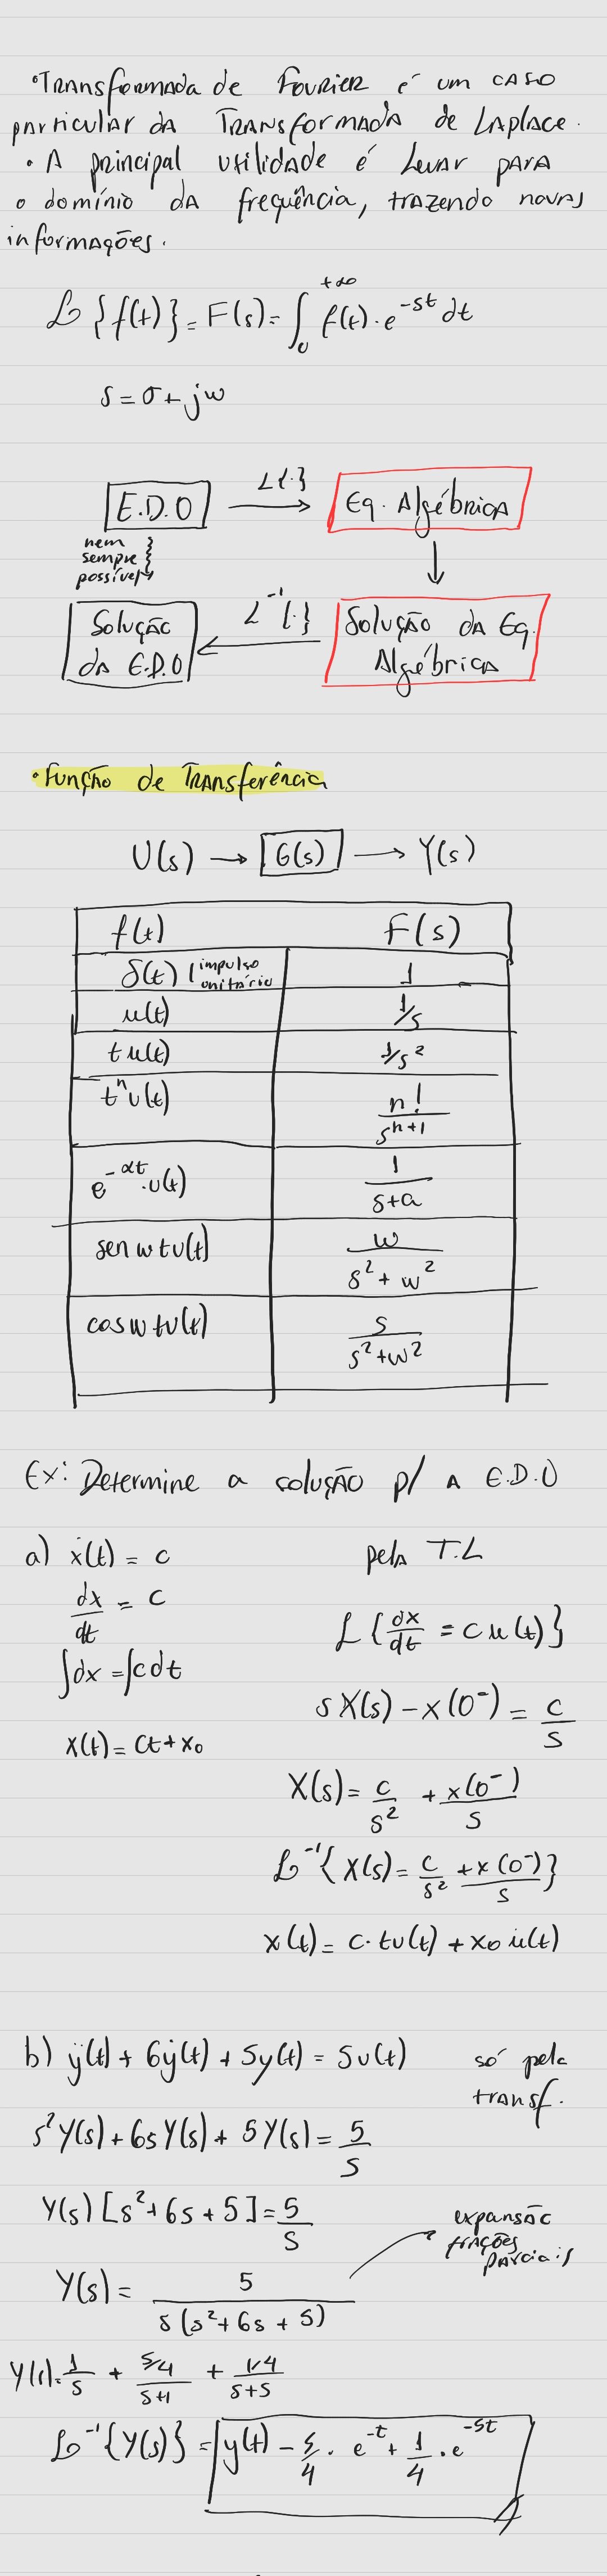 • Transformada de Fourier é um caso
particular da Transformada de Laplace.
• A principal utilidade é levar para
o domínio da frequência, trazendo novas
informações.
ℒ {f(t)} = F(s) = ∫₀^{+∞} f(t)·e^{-st} dt
s = σ + jω
E.D.O → L{·} → Eq. Algébrica
nem
sempre
possível
Solução da E.D.O ← L⁻¹{·} Solução da Eq. Algébrica
• Função de Transferência
U(s) → G(s) → Y(s)
f(t) F(s)
δ(t) (impulso unitário 1
u(t) 1/s
t u(t) 1/s²
tⁿ u(t) n!/s^{n+1}
e^{-αt}·u(t) 1/(s+a)
sen wt u(t) w/(s² + w²)
cos wt u(t) s/(s² + w²)
Ex: Determine a solução p/ a E.D.O
a) ẋ(t) = c
dx/dt = c
∫dx = ∫c dt
x(t) = ct + x₀
pela T.L
ℒ {dx/dt = c u(t)}
s X(s) − x(0⁻) = c/s
X(s) = c/s² + x(0⁻)/s
ℒ⁻¹{X(s) = c/s² + x(0⁻)/s}
x(t) = c· t u(t) + x₀ u(t)
b) ÿ(t) + 6ẏ(t) + 5y(t) = 5u(t)
só pela
transf.
s²Y(s) + 6sY(s) + 5Y(s) = 5/s
Y(s) [s² + 6s + 5] = 5/s
expansão
frações
parciais
Y(s) = 5/(s(s² + 6s + 5))
Y(s) = 1/s + (5/4)/(s+1) + (1/4)/(s+5)
ℒ⁻¹{Y(s)} = y(t) − 5/4 · e^{-t} + 1/4 · e^{-5t}